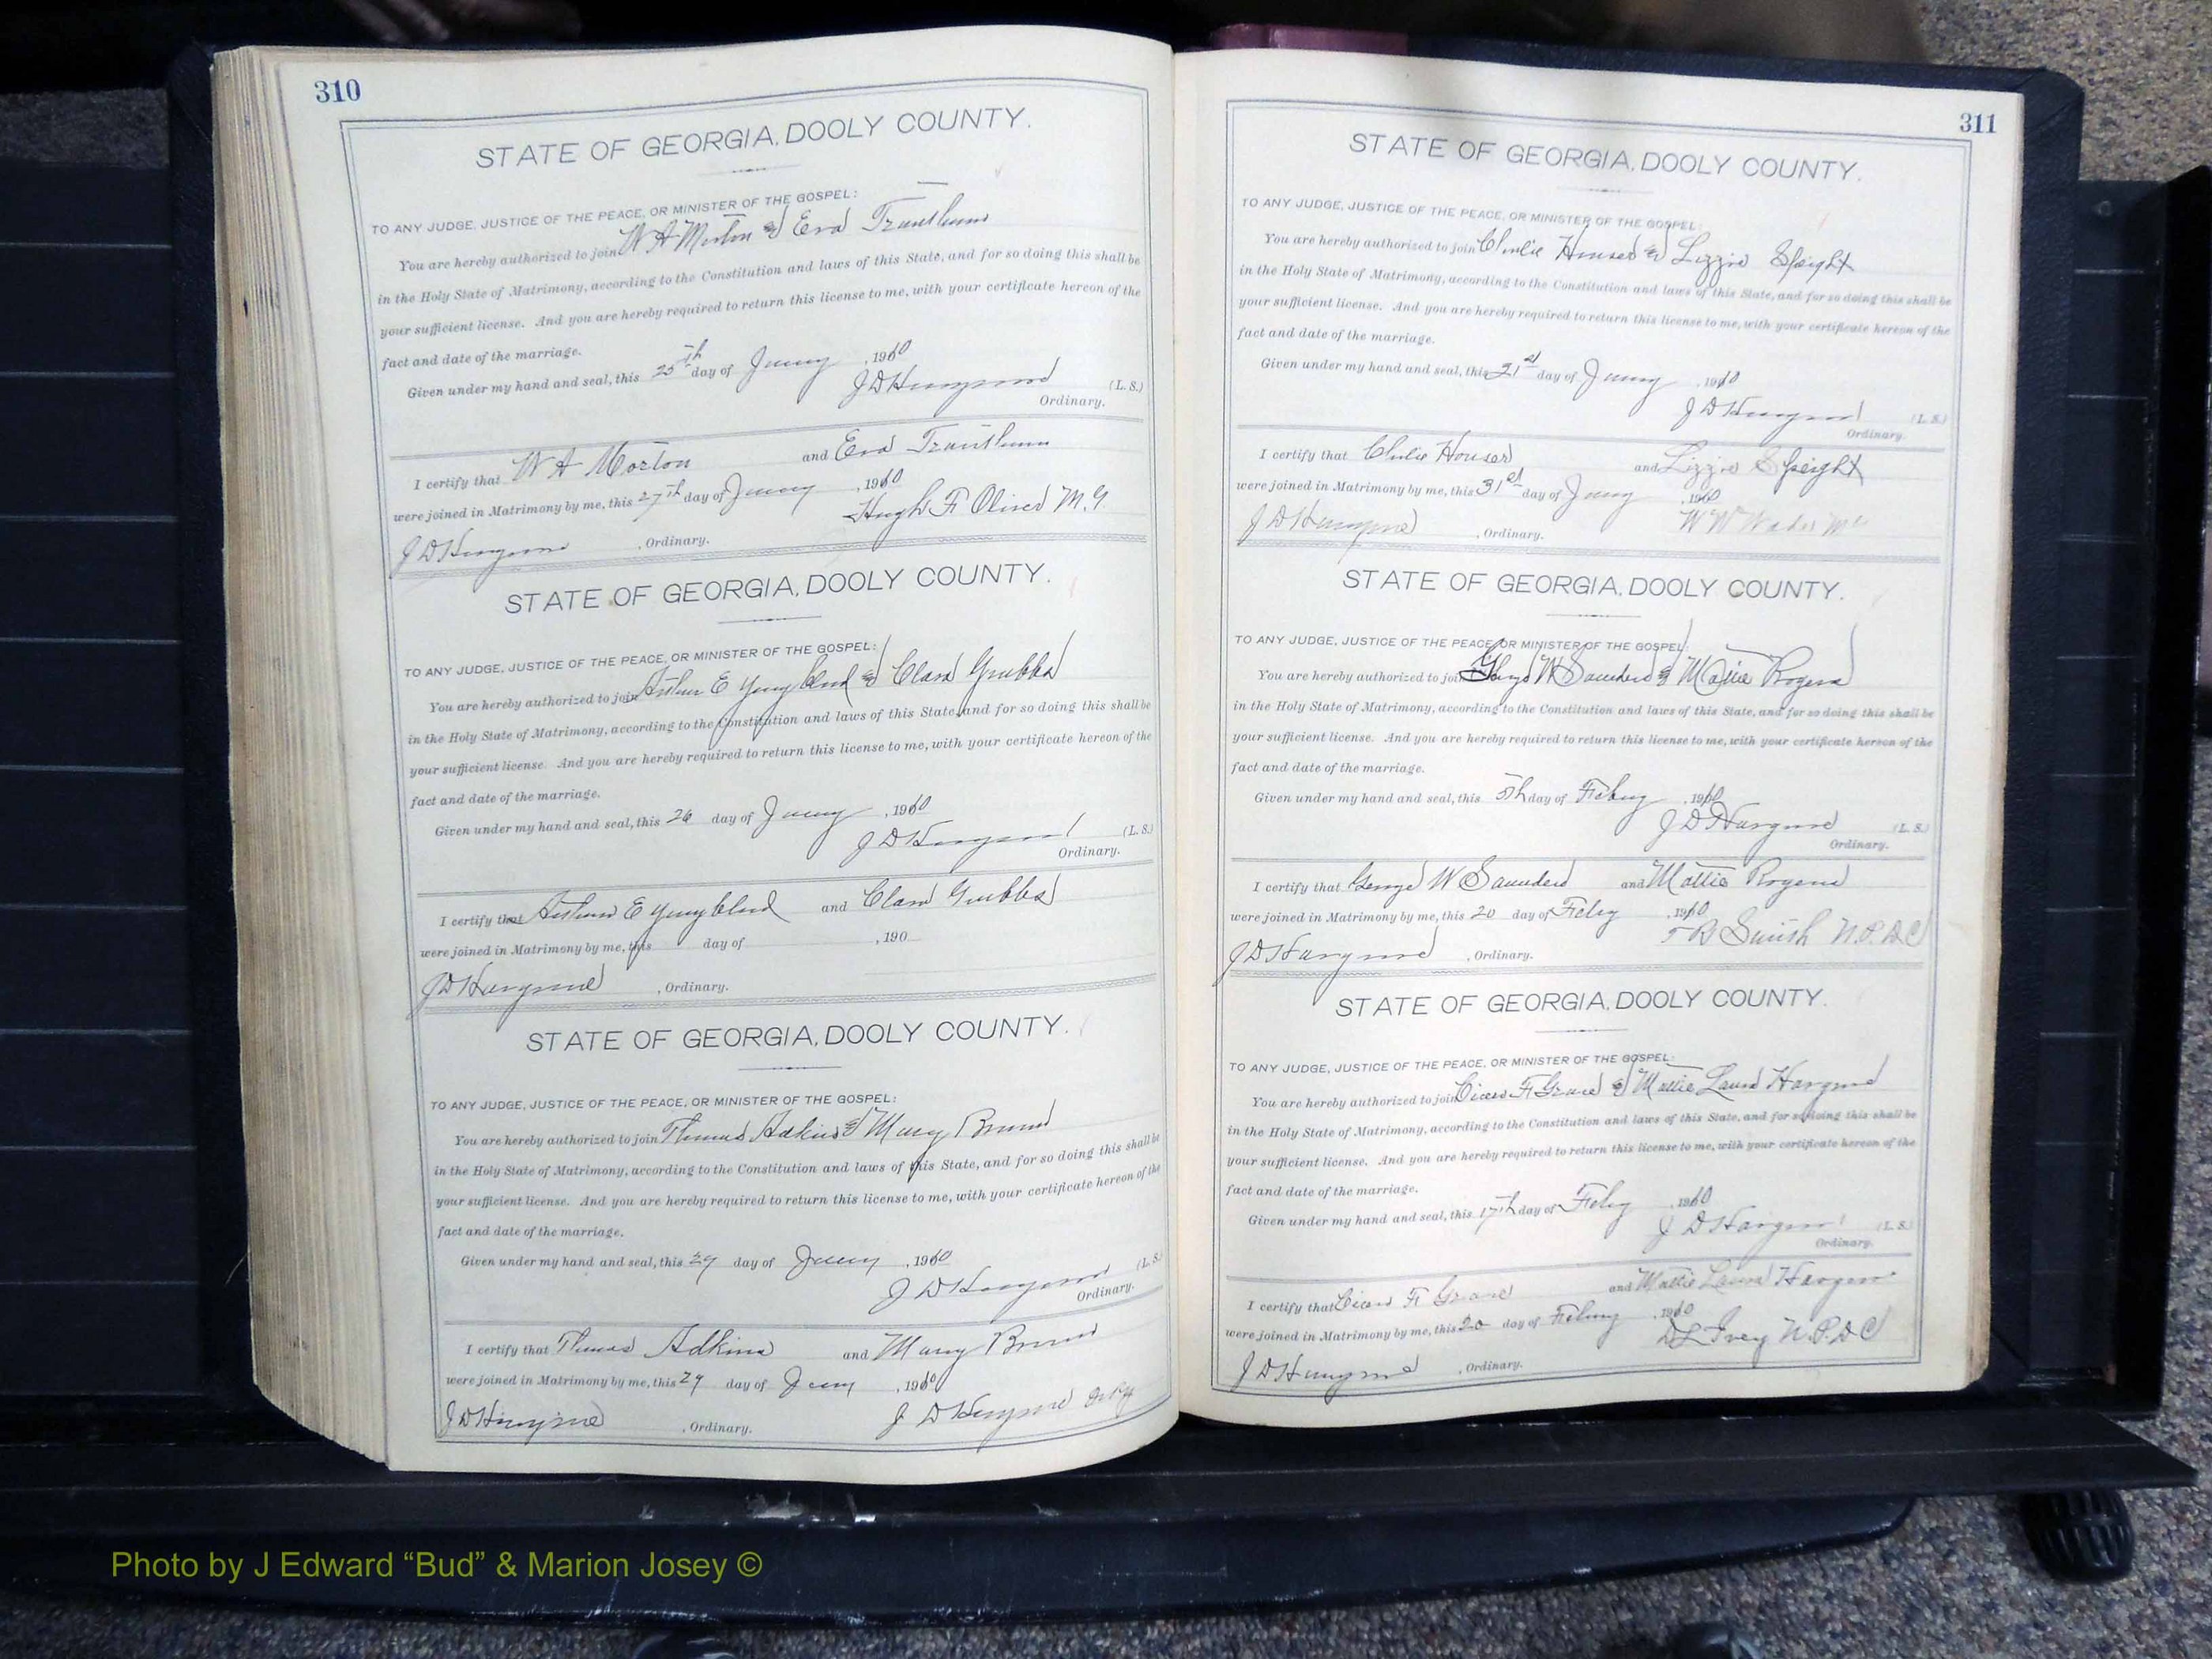 310
STATE OF GEORGIA, DOOLY COUNTY.
TO ANY JUDGE, JUSTICE OF THE PEACE, OR MINISTER OF THE GOSPEL:
You are hereby authorized to join W A Morton & Eva
in the Holy State of Matrimony, according to the Constitution and laws of this State, and for so doing this shall be
your sufficient license. And you are hereby required to return this license to me, with your certificate hereon of the
fact and date of the marriage.
Given under my hand and seal, this 25th day of , 1910
J D (L. S.)
Ordinary.
I certify that W A Morton and Eva
were joined in Matrimony by me, this 27th day of , 1910
Hugh F Oliver M.G
J D , Ordinary.
STATE OF GEORGIA, DOOLY COUNTY.
TO ANY JUDGE, JUSTICE OF THE PEACE, OR MINISTER OF THE GOSPEL:
You are hereby authorized to join Arthur E Youngblood & Clara Grubbs
in the Holy State of Matrimony, according to the Constitution and laws of this State, and for so doing this shall be
your sufficient license. And you are hereby required to return this license to me, with your certificate hereon of the
fact and date of the marriage.
Given under my hand and seal, this 26 day of , 1910
J D (L. S.)
Ordinary.
I certify that Arthur E Youngblood and Clara Grubbs
were joined in Matrimony by me, this day of , 190
J D , Ordinary.
STATE OF GEORGIA, DOOLY COUNTY.
TO ANY JUDGE, JUSTICE OF THE PEACE, OR MINISTER OF THE GOSPEL:
You are hereby authorized to join Thomas Adkins & Mary
in the Holy State of Matrimony, according to the Constitution and laws of this State, and for so doing this shall be
your sufficient license. And you are hereby required to return this license to me, with your certificate hereon of the
fact and date of the marriage.
Given under my hand and seal, this 29 day of , 1910
J D (L. S.)
Ordinary.
I certify that Thomas Adkins and Mary
were joined in Matrimony by me, this 29 day of , 1910
J D
J D , Ordinary.
311
STATE OF GEORGIA, DOOLY COUNTY.
TO ANY JUDGE, JUSTICE OF THE PEACE, OR MINISTER OF THE GOSPEL:
You are hereby authorized to join Charlie Houser & Lizzie Speight
in the Holy State of Matrimony, according to the Constitution and laws of this State, and for so doing this shall be
your sufficient license. And you are hereby required to return this license to me, with your certificate hereon of the
fact and date of the marriage.
Given under my hand and seal, this day of , 1910
J D (L. S.)
Ordinary.
I certify that Charlie Houser and Lizzie Speight
were joined in Matrimony by me, this 31st day of , 1910
W W
J D , Ordinary.
STATE OF GEORGIA, DOOLY COUNTY.
TO ANY JUDGE, JUSTICE OF THE PEACE, OR MINISTER OF THE GOSPEL:
You are hereby authorized to join George W Saunders & Mattie Rogers
in the Holy State of Matrimony, according to the Constitution and laws of this State, and for so doing this shall be
your sufficient license. And you are hereby required to return this license to me, with your certificate hereon of the
fact and date of the marriage.
Given under my hand and seal, this 5th day of , 1910
J D (L. S.)
Ordinary.
I certify that George W Saunders and Mattie Rogers
were joined in Matrimony by me, this 20 day of , 1910
N.P. D C
J D , Ordinary.
STATE OF GEORGIA, DOOLY COUNTY.
TO ANY JUDGE, JUSTICE OF THE PEACE, OR MINISTER OF THE GOSPEL:
You are hereby authorized to join Cicero F & Mattie Laura
in the Holy State of Matrimony, according to the Constitution and laws of this State, and for so doing this shall be
your sufficient license. And you are hereby required to return this license to me, with your certificate hereon of the
fact and date of the marriage.
Given under my hand and seal, this 17th day of , 1910
J D (L. S.)
Ordinary.
I certify that Cicero F and Mattie Laura
were joined in Matrimony by me, this 20 day of , 1910
D L Ivey N.P. D C
J D , Ordinary.
Photo by J Edward “Bud” & Marion Josey ©